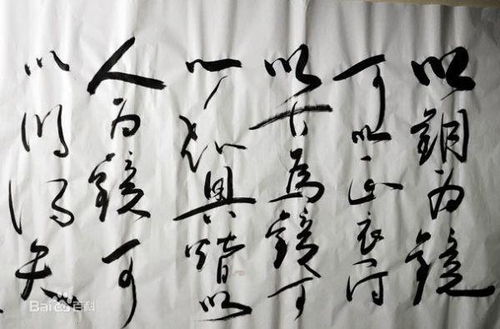 以銅为鏡
可以正衣冠
以古為鏡可
以知興替以
人为鏡可
以明得失
Bai百科